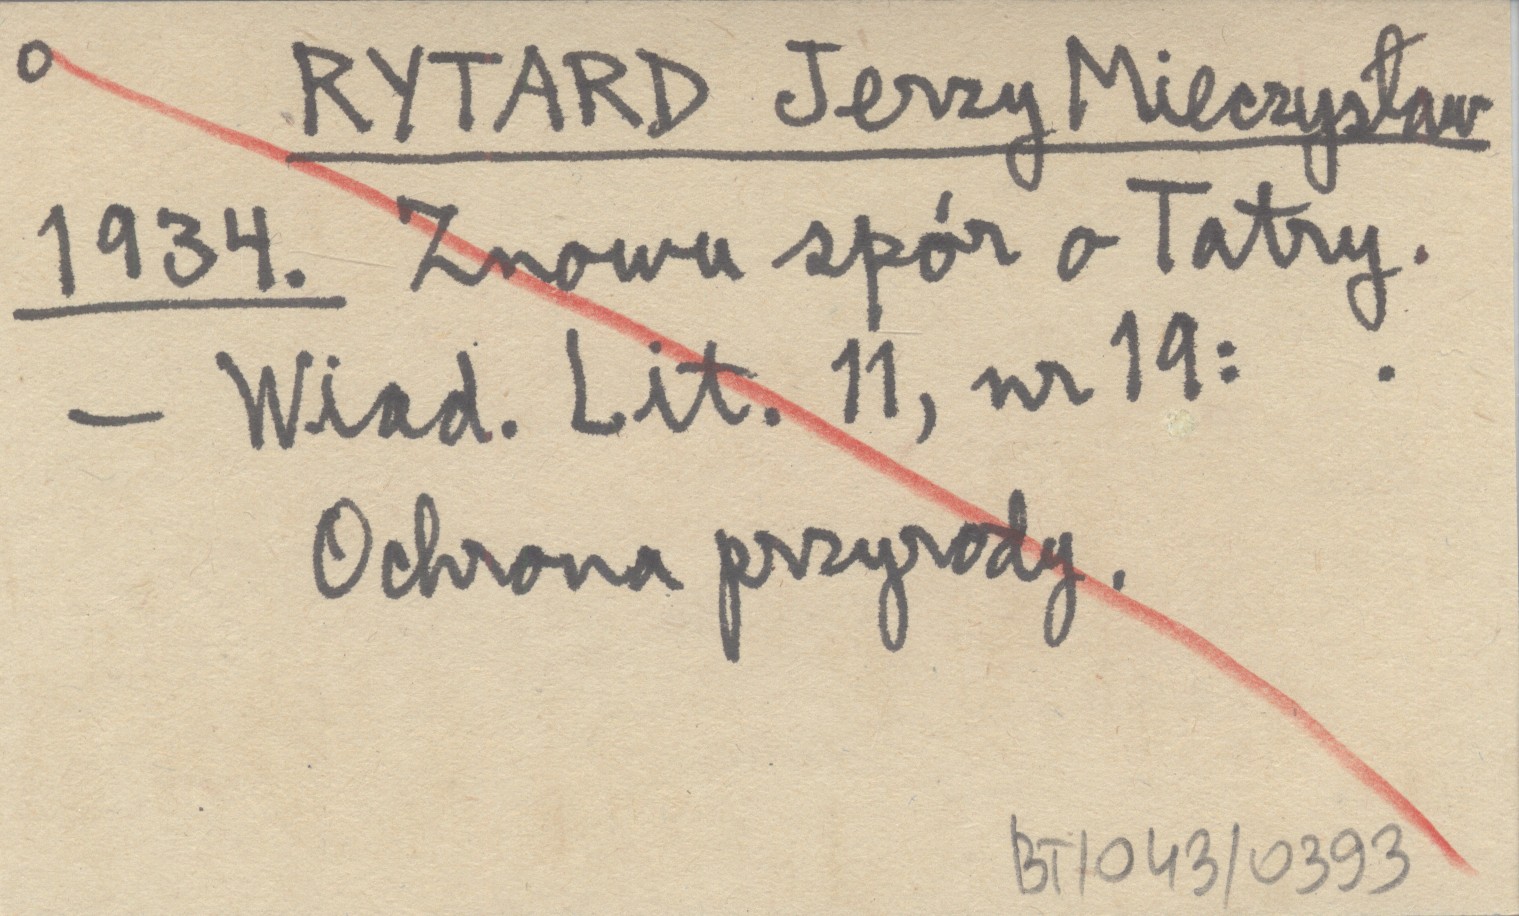 o RYTARD Jerzy Mieczysław
1934. Znowu spór o Tatry.
— Wiad. Lit. 11, nr 19: .
Ochrona przyrody.
BT/043/0393